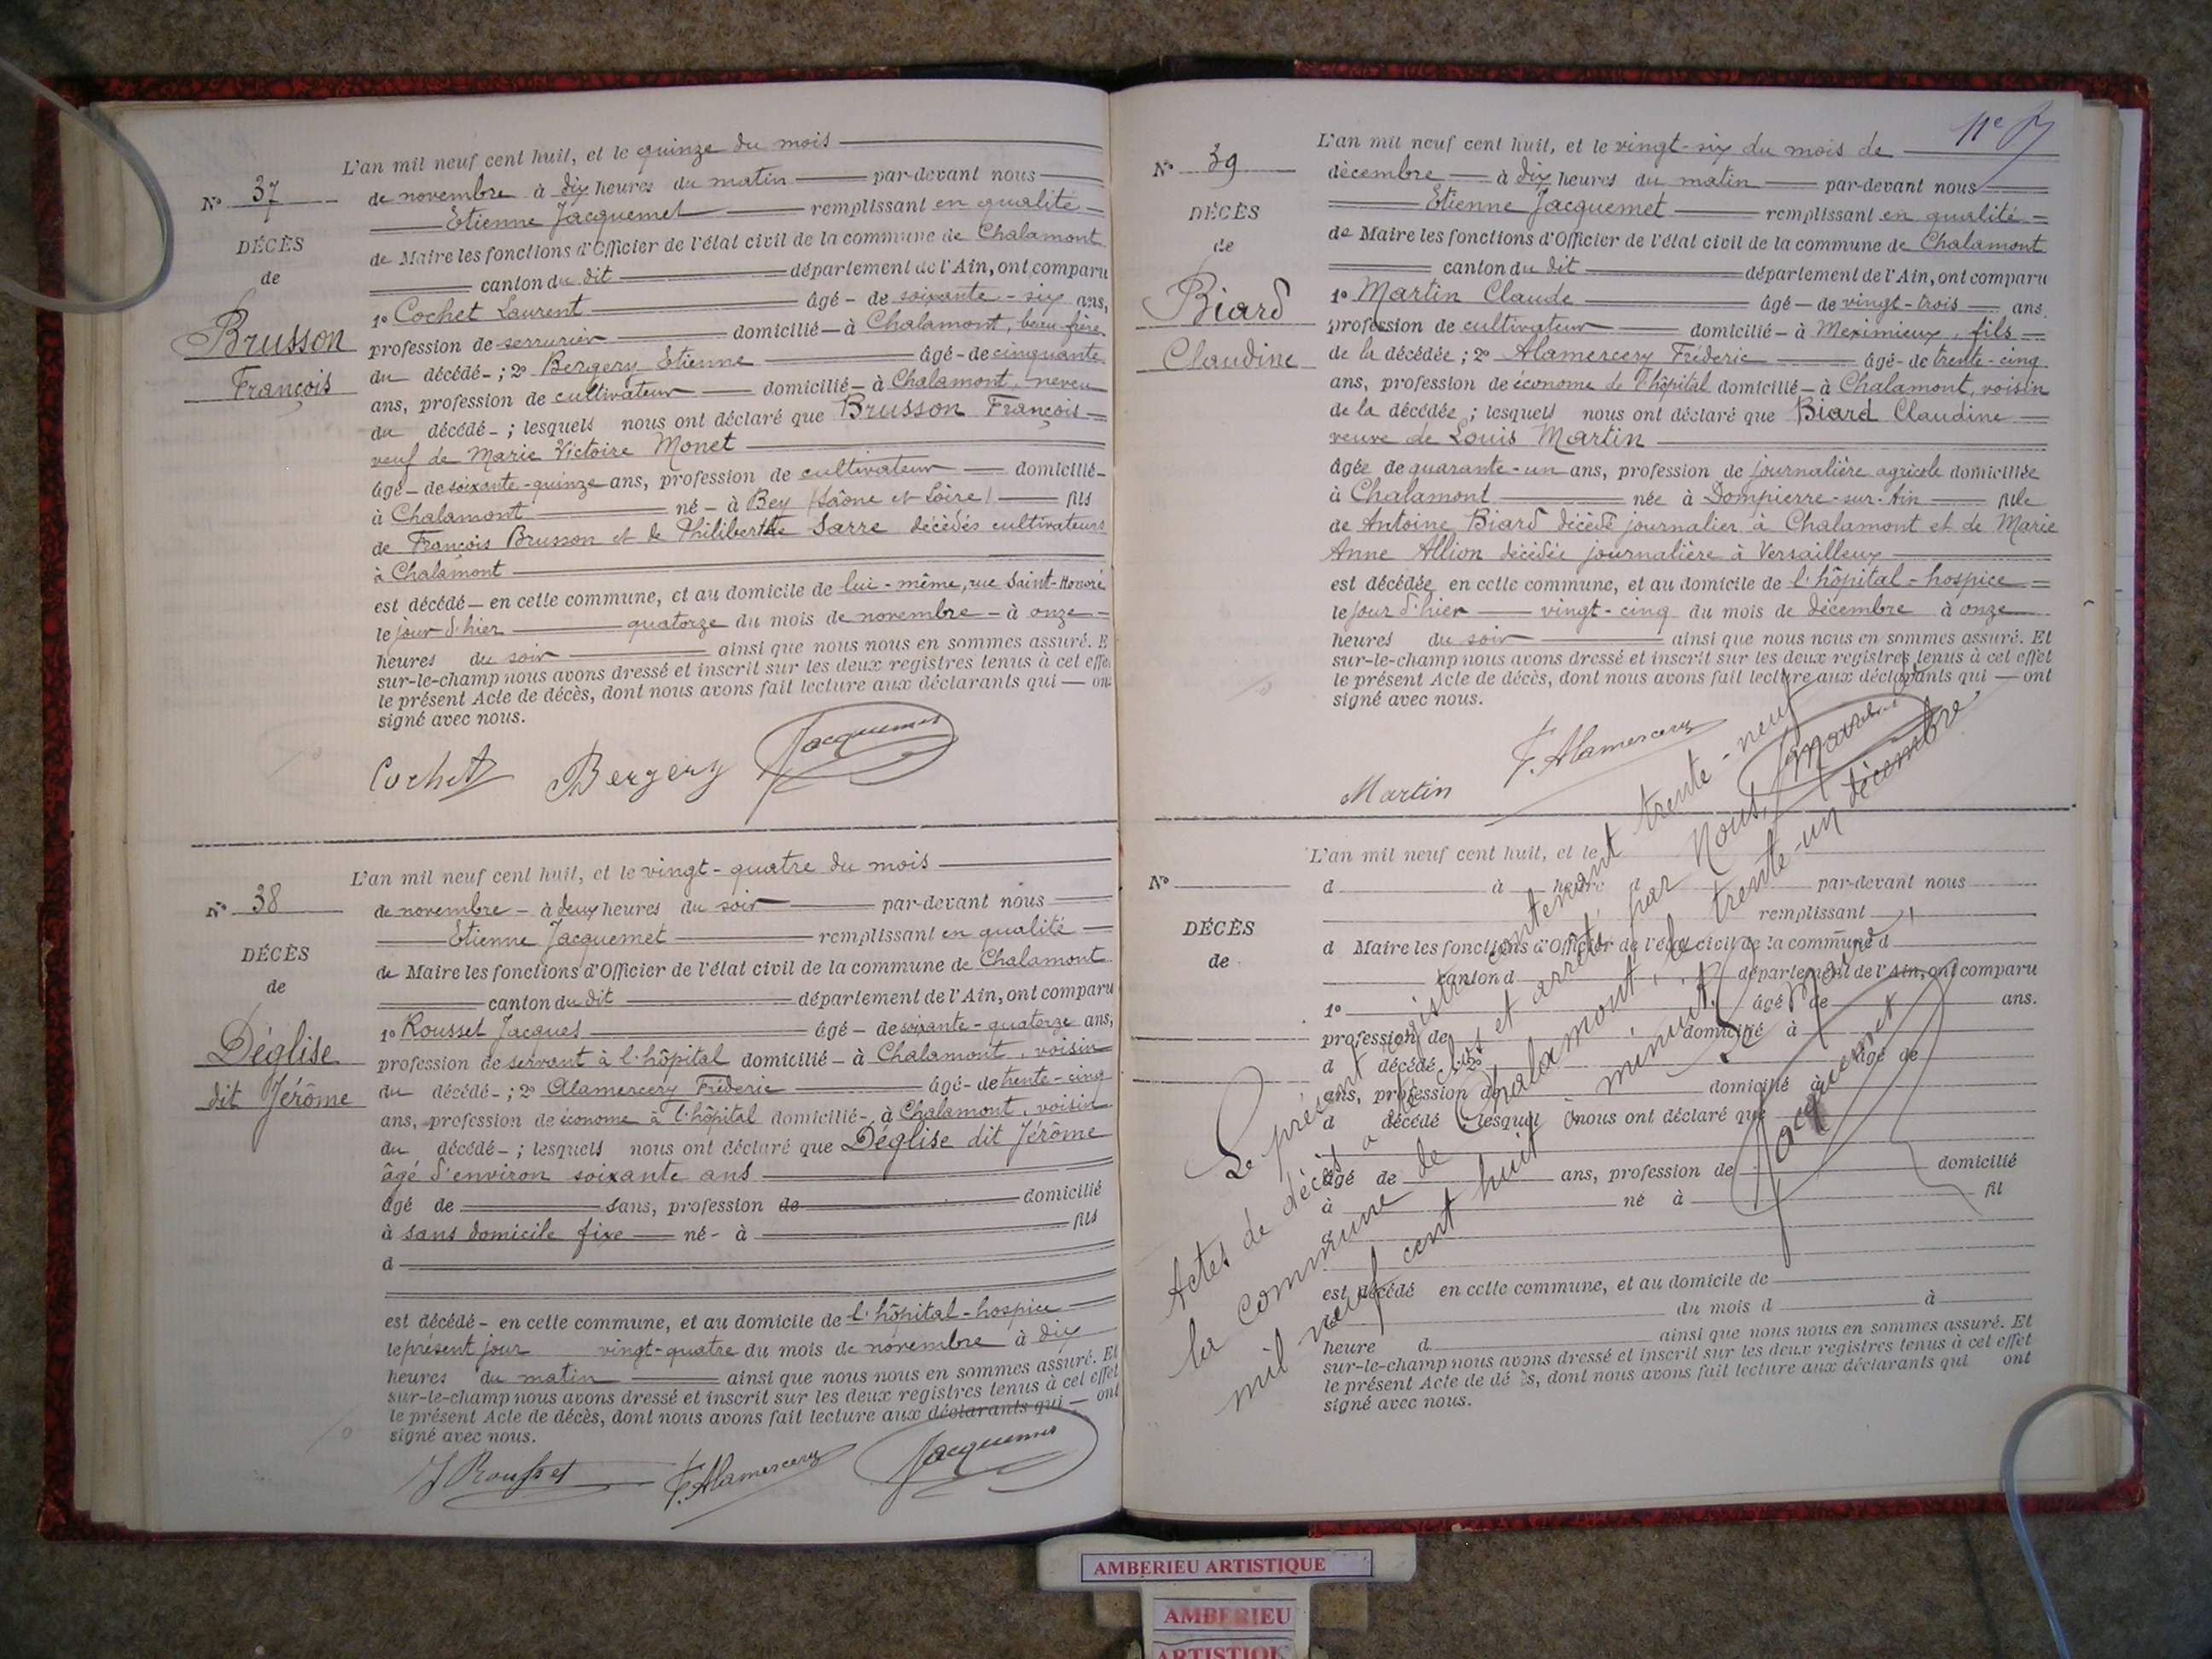 L'an mil neuf cent huit, et le quinze du mois
N° 37
de novembre à dix heures du matin par-devant nous
Etienne Jacquemet remplissant en qualité
DÉCÈS
de Maire les fonctions d'Officier de l'état civil de la commune de Chalamont
de
canton du dit département de l'Ain, ont comparu
1° Cochet Laurent âgé - de soixante-six ans,
Brusson
profession de serrurier domicilié - à Chalamont, beau-frère
François
du décédé - ; 2° Bergery Etienne âgé - de cinquante
ans, profession de cultivateur domicilié - à Chalamont, neveu
du décédé - ; lesquels nous ont déclaré que Brusson François
veuf de Marie Victoire Monet
âgé - de soixante-quinze ans, profession de cultivateur domicilié -
à Chalamont né - à Bey (Saône et Loire) fils
de François Brusson et de Philiberthe Sarre décédés cultivateurs
à Chalamont
est décédé - en cette commune, et au domicile de lui-même, rue Saint-Honoré
le jour d'hier quatorze du mois de novembre - à onze
heures du soir ainsi que nous nous en sommes assuré. E
sur-le-champ nous avons dressé et inscrit sur les deux registres tenus à cet effe
le présent Acte de décès, dont nous avons fait lecture aux déclarants qui - on
signé avec nous.
Cochet Bergery Jacquemet
L'an mil neuf cent huit, et le vingt-quatre du mois
N° 38
de novembre - à deux heures du soir par-devant nous
Etienne Jacquemet remplissant en qualité
DÉCÈS
de Maire les fonctions d'Officier de l'état civil de la commune de Chalamont
de
canton du dit département de l'Ain, ont comparu
1° Rousset Jacques âgé - de soixante-quatorze ans,
Déglise
profession de servant à l'hôpital domicilié - à Chalamont, voisin
dit Jérôme
du décédé - ; 2° Alamercery Fréderic âgé - de trente-cinq
ans, profession de économe à l'hôpital domicilié - à Chalamont, voisin
du décédé - ; lesquels nous ont déclaré que Déglise dit Jérôme
âgé d'environ soixante ans
âgé de sans, profession de domicilié
à sans domicile fixe né - à fils
d
est décédé - en cette commune, et au domicile de l'hôpital-hospice
le présent jour vingt-quatre du mois de novembre à dix
heures du matin ainsi que nous nous en sommes assuré. Et
sur-le-champ nous avons dressé et inscrit sur les deux registres tenus à cet effet
le présent Acte de décès, dont nous avons fait lecture aux déclarants qui - ont
signé avec nous.
J Rousset F. Alamercery Jacquemet
11e
L'an mil neuf cent huit, et le vingt-six du mois de
N° 39
décembre à dix heures du matin par-devant nous
Etienne Jacquemet remplissant en qualité
DÉCÈS
de Maire les fonctions d'Officier de l'état civil de la commune de Chalamont
de
canton du dit département de l'Ain, ont comparu
Biard
1° Martin Claude âgé - de vingt-trois ans.
profession de cultivateur domicilié - à Meximieux, fils
Claudine
de la décédée ; 2° Alamercery Fréderic âgé - de trente-cinq
ans, profession de économe de l'hôpital domicilié - à Chalamont, voisin
de la décédée ; lesquels nous ont déclaré que Biard Claudine
veuve de Louis Martin
âgée de quarante-un ans, profession de journalière agricole domiciliée
à Chalamont née à Dompierre-sur-Ain fille
de Antoine Biard décédé journalier à Chalamont et de Marie
Anne Allion décédée journalière à Versailleux
est décédée en cette commune, et au domicile de l'hôpital-hospice
le jour d'hier vingt-cinq du mois de décembre à onze
heures du soir ainsi que nous nous en sommes assuré. Et
sur-le-champ nous avons dressé et inscrit sur les deux registres tenus à cet effet
le présent Acte de décès, dont nous avons fait lecture aux déclarants qui - ont
signé avec nous.
Martin F. Alamercery
L'an mil neuf cent huit, et le
N°
d à heure d par-devant nous
remplissant
DÉCÈS
d Maire les fonctions d'Officier de l'état civil de la commune d
de
canton d département de l'Ain, ont comparu
1° âgé de ans.
profession de domicilié à
d décédé ; 2° âgé de
ans, profession de domicilié à
d décédé lesquel nous ont déclaré que
âgé de ans, profession de domicilié
à né à fil
est décédé en cette commune, et au domicile de
du mois d à
heure d ainsi que nous nous en sommes assuré. Et
sur-le-champ nous avons dressé et inscrit sur les deux registres tenus à cet effet
le présent Acte de décès, dont nous avons fait lecture aux déclarants qui ont
signé avec nous.
Le présent registre contenant trente-neuf
Actes de décès a été clos et arrêté par Nous, Maire de
la commune de Chalamont, le trente-un décembre
mil neuf cent huit à minuit.
Le Maire,
Jacquemet
AMBERIEU ARTISTIQUE
AMBERIEU
ARTISTIQ